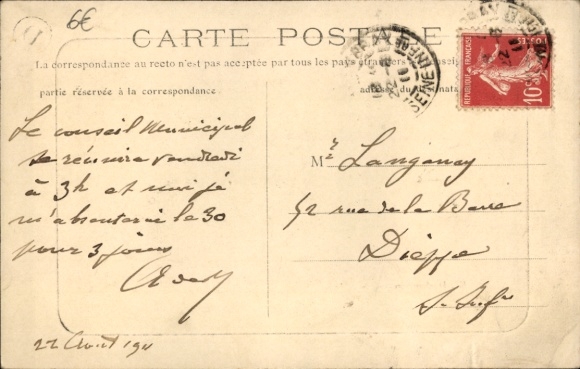 6€
CARTE POSTALE
La correspondance au recto n'est pas acceptée par tous les pays étrangers
partie réservée à la correspondance.
Le conseil Municipal
se réunira vendredi
à 3h et moi je
m'absenterai le 30
pour 3 jours
22 Août 1911
REPUBLIQUE FRANÇAISE
POSTES
10c
Mr Langanay
52 rue de la Barre
Dieppe
S. Infre